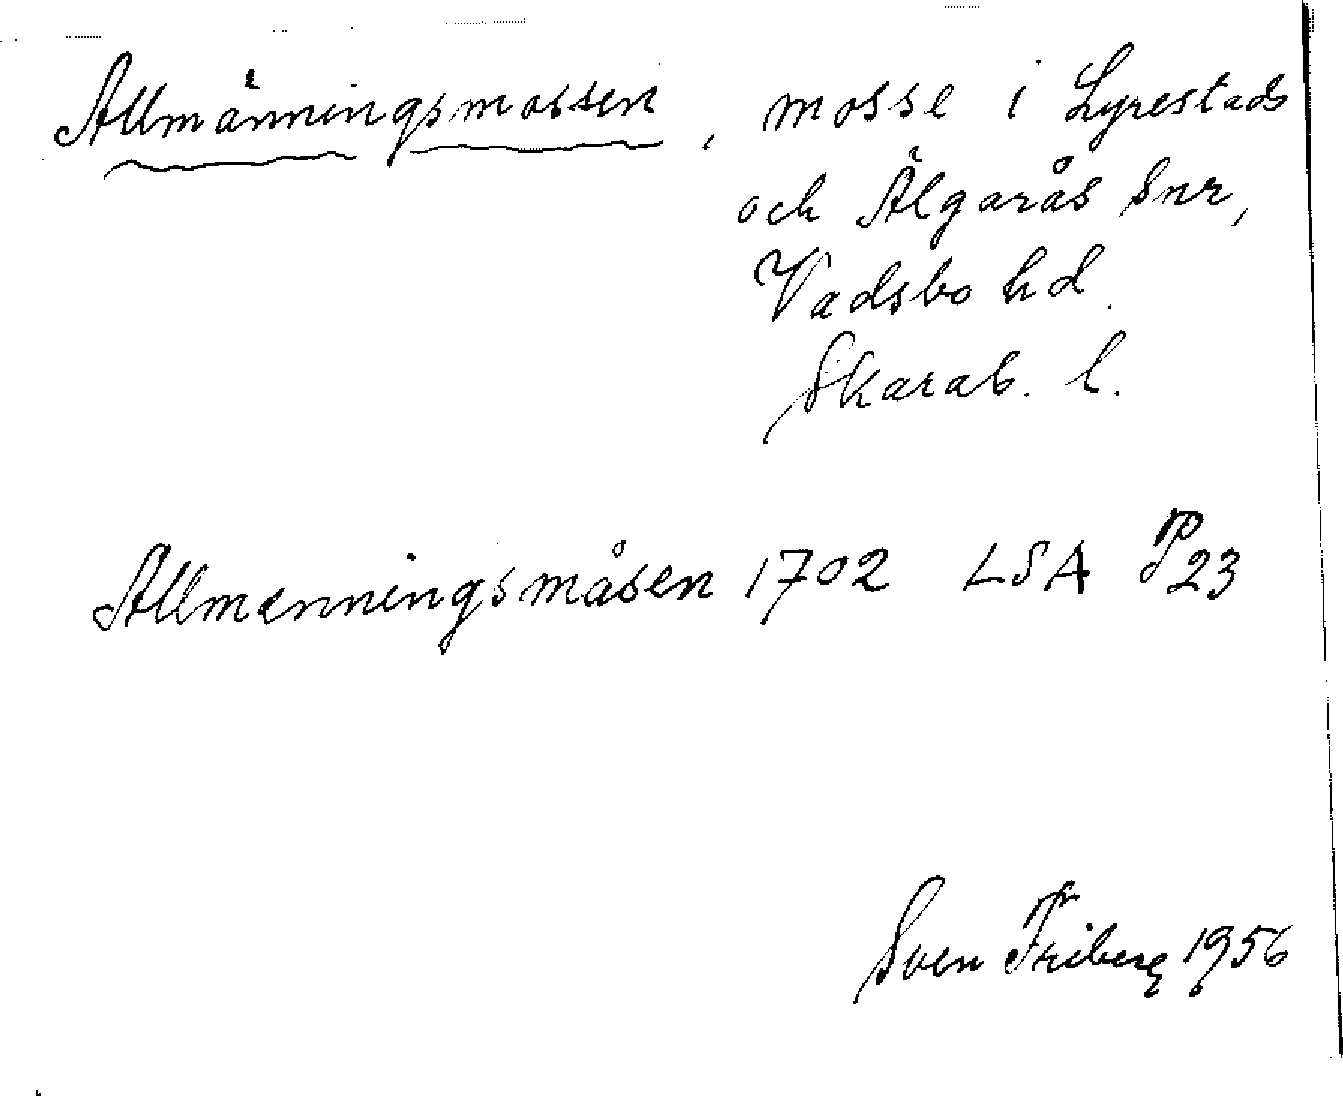 Allmänningsmossen, mosse i Lyrestads
och Älgarås snr,
Vadsbo hd.
Skarab. l.
Allmenningsmåsen 1702 LSA P23
Sven Friberg 1956